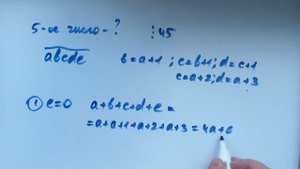 5-ое число - ? ⋮ 45
abcde b = a+1 ; c = b+1 ; d = c+1
c = a+2 ; d = a+3
① e=0 a+b+c+d+e =
= a+a+1+a+2+a+3 = 4a+6